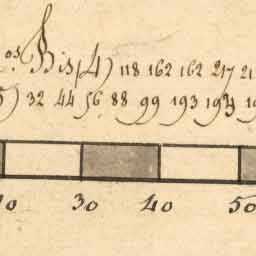 os Bis(4) 118 162 162 217 21
5) 32 44 56 88 99 193 194 19
30 40 50